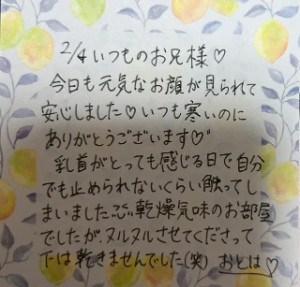 2/4 いつものお兄様♡
今日も元気なお顔が見られて
安心しました♡いつも寒いのに
ありがとうございます♡
乳首がとっても感じる日で自分
でも止められないくらい触ってし
まいました💦乾燥気味のお部屋
でしたが、ヌルヌルさせてくださって
下は乾きませんでした(笑) おとは♡